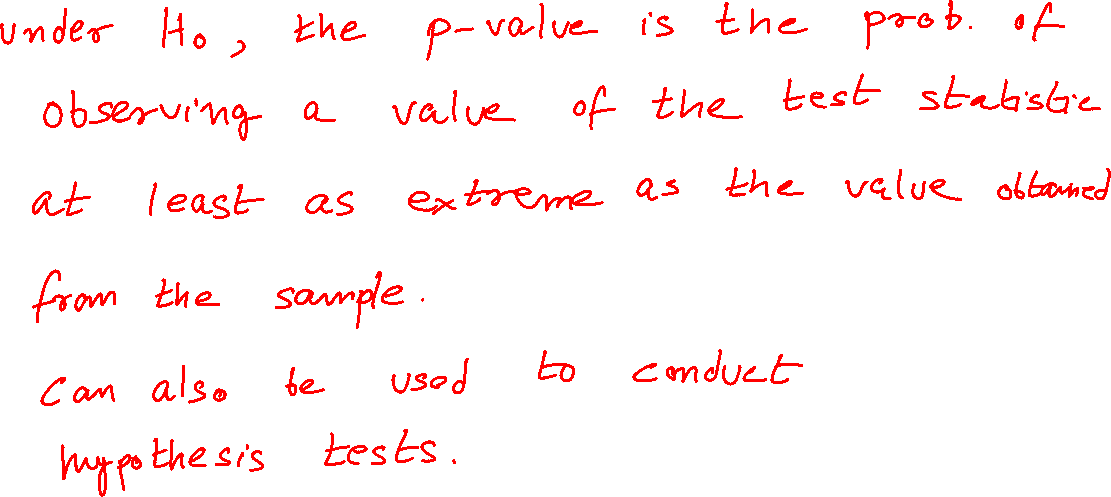 under H₀, the p-value is the prob. of
observing a value of the test statistic
at least as extreme as the value obtained
from the sample.
can also be used to conduct
hypothesis tests.